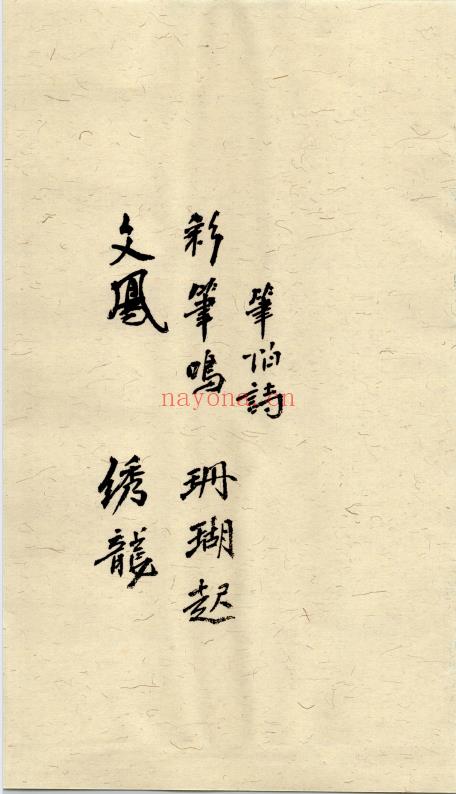 筆伯詩
彩筆鳴 珊瑚起
文鳳 绣龍
nayona.cn